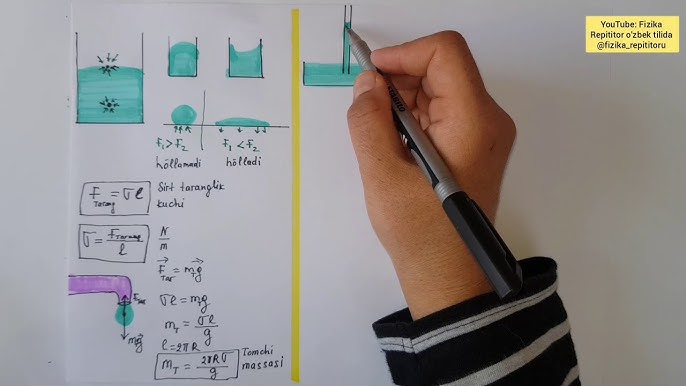 YouTube: Fizika
Repititor o'zbek tilida
@fizika_repititoru
F₁>F₂
F₁<F₂
höllamadi
hölladi
F_Tarang = σℓ
Sirt taranglik
kuchi
σ = F_Tarang/ℓ
N/m
F⃗_Tar = m_T g⃗
F_Tar
σℓ = m_T g
m_T = σℓ/g
mg⃗
ℓ = 2πR
m_T = 2πRσ/g
Tomchi
massasi